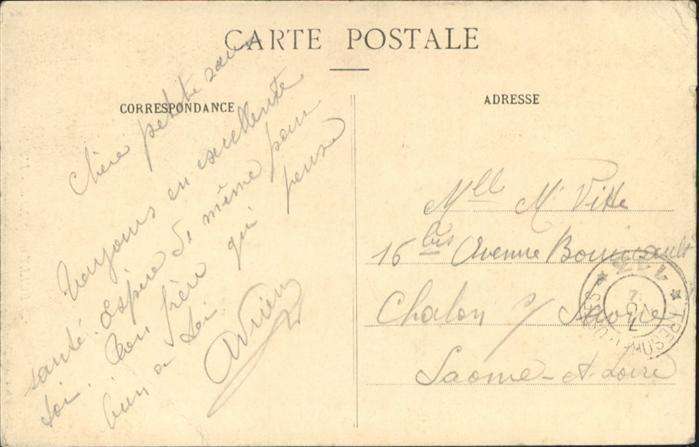 CARTE POSTALE
CORRESPONDANCE
Chère petite sœur
Toujours en excellente
santé. Espère de même pour
toi. Ton frère qui pense
bien à toi.
Adrien
ADRESSE
Mlle M. Vitte
16 bis Avenue Boucicault
Chalon s/ Saône
Saône-et-Loire
TRESOR ET POSTES